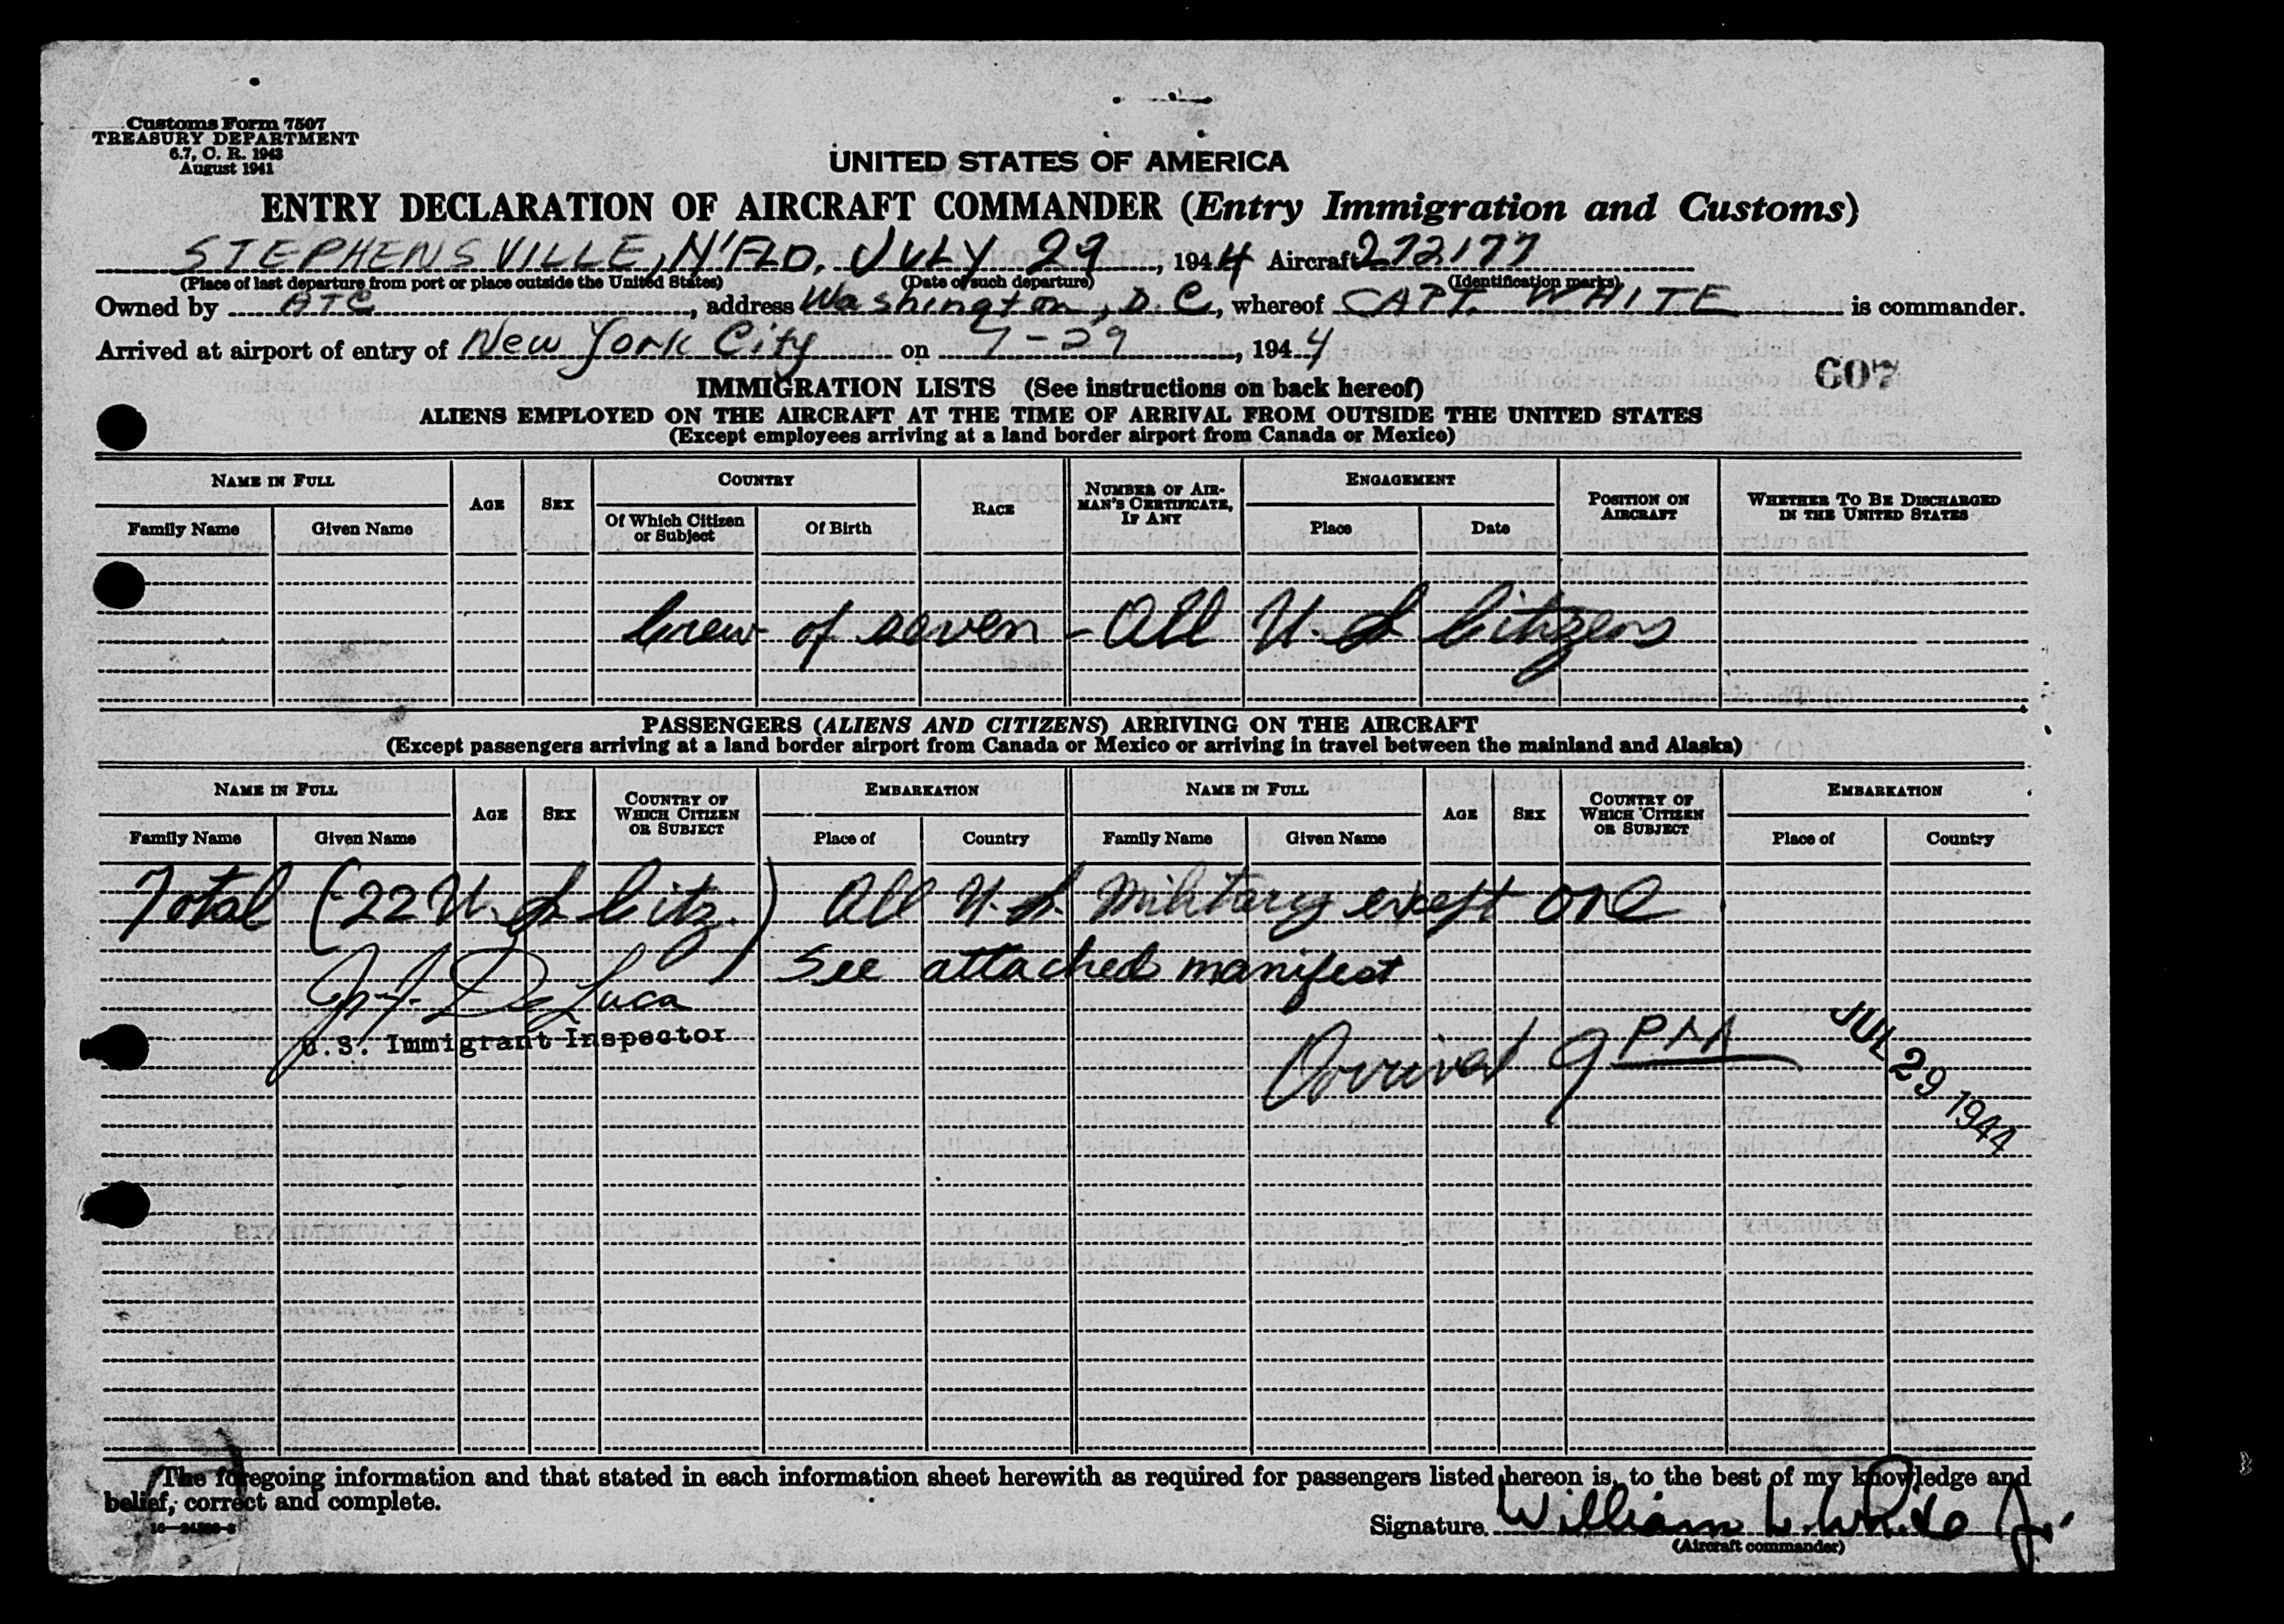 Customs Form 7507
TREASURY DEPARTMENT
6.7, C. R. 1943
August 1941
UNITED STATES OF AMERICA
ENTRY DECLARATION OF AIRCRAFT COMMANDER (Entry Immigration and Customs)
STEPHENSVILLE, N'FLD. JULY 29, 1944 Aircraft 272177
(Place of last departure from port or place outside the United States) (Date of such departure) (Identification marks)
Owned by ATC, address Washington, D.C., whereof CAPT. WHITE is commander.
Arrived at airport of entry of New York City on 7-29, 1944
607
IMMIGRATION LISTS (See instructions on back hereof)
ALIENS EMPLOYED ON THE AIRCRAFT AT THE TIME OF ARRIVAL FROM OUTSIDE THE UNITED STATES
(Except employees arriving at a land border airport from Canada or Mexico)
NAME IN FULL AGE SEX COUNTRY RACE NUMBER OF AIRMAN'S CERTIFICATE, IF ANY ENGAGEMENT POSITION ON AIRCRAFT WHETHER TO BE DISCHARGED IN THE UNITED STATES
Family Name Given Name Of Which Citizen or Subject Of Birth Place Date
Crew of seven - All U.S Citizens
PASSENGERS (ALIENS AND CITIZENS) ARRIVING ON THE AIRCRAFT
(Except passengers arriving at a land border airport from Canada or Mexico or arriving in travel between the mainland and Alaska)
NAME IN FULL AGE SEX COUNTRY OF WHICH CITIZEN OR SUBJECT EMBARKATION NAME IN FULL AGE SEX COUNTRY OF WHICH CITIZEN OR SUBJECT EMBARKATION
Family Name Given Name Place of Country Family Name Given Name Place of Country
Total (22 U.S Citz.) All U.S. Military except one
See attached manifest
De Luca
U.S. Immigrant Inspector
Arrived 9 PAA
JUL 29 1944
The foregoing information and that stated in each information sheet herewith as required for passengers listed hereon is, to the best of my knowledge and
belief, correct and complete.
Signature William L. White Jr.
(Aircraft commander)